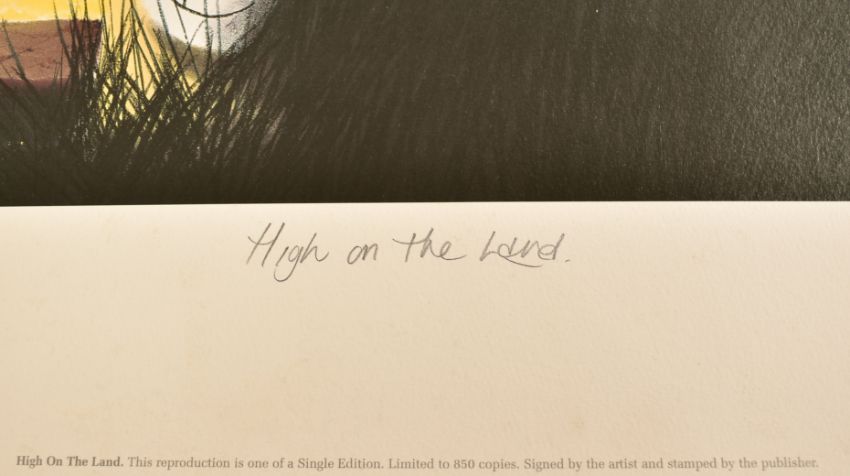 High on the Land.
High On The Land. This reproduction is one of a Single Edition. Limited to 850 copies. Signed by the artist and stamped by the publisher.